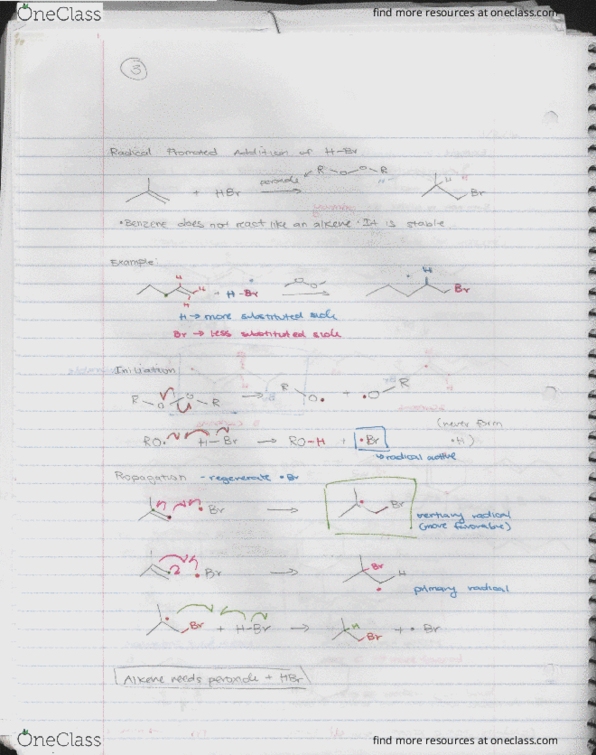 OneClass
find more resources at oneclass.com
3
Radical Promoted Addition of H-Br
+ HBr peroxide R O O R H Br
•Benzene does not react like an alkene. It is stable
Example:
H H H H-Br H Br
H → more substituted side
Br → less substituted side
Initiation
R-O O-R → R O• + •O R
RO• H-Br → RO-H + •Br (never form •H)
↳ radical active
Propagation - regenerate •Br
•Br → • Br tertiary radical
(more favorable)
•Br → Br H
primary radical
Br + H-Br → H Br + •Br
Alkene needs peroxide + HBr
OneClass
find more resources at oneclass.com